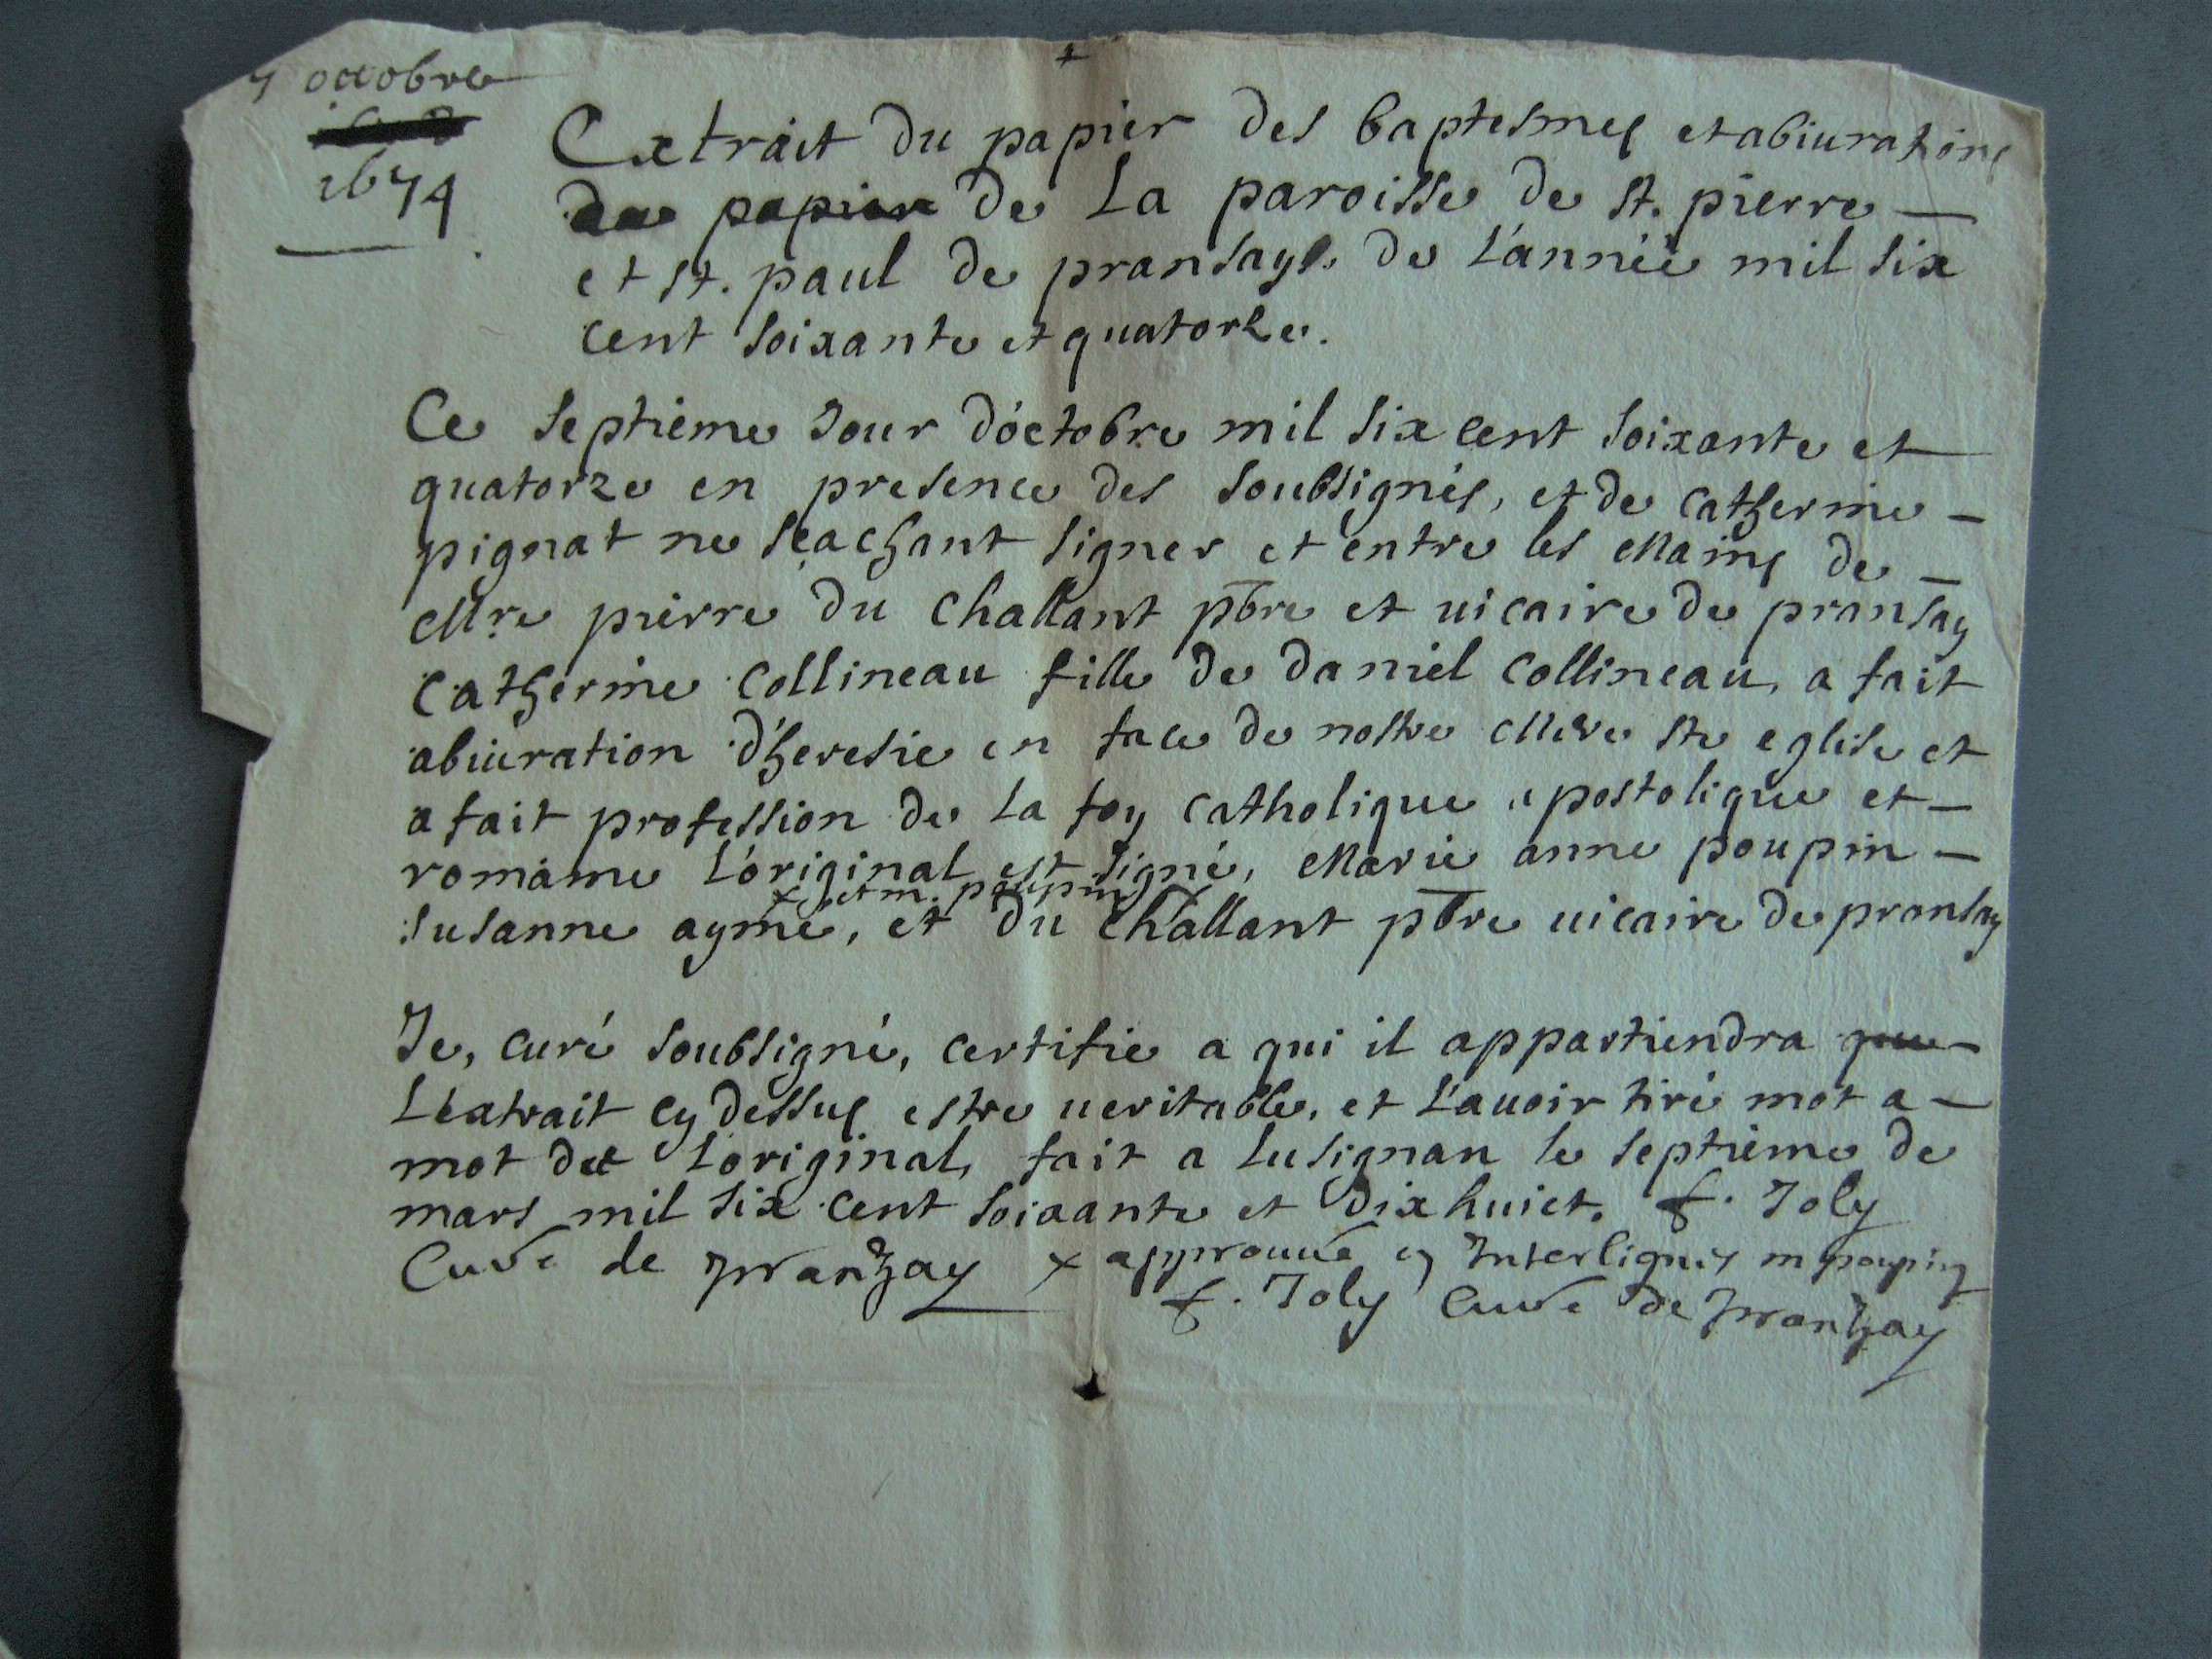 7 octobre
1674
Extrait du papier des baptesmes et abiurations
du papier de La paroisse de st. pierre —
et st. paul de pransay de L'année mil six
cent soixante et quatorze.
Ce septieme Jour d'octobre mil six cent soixante et
quatorze en presence des soubsignés, et de catherine —
pignat ne sçachant signer et entre les Mains de —
Mre pierre du challant pbre et uicaire de pransay
catherine collineau fille de daniel collineau, a fait
abiuration d'heresie en face de nostre Mere ste eglise et
a fait profession de La foy catholique apostolique et —
romaine L'original est signé, Marie anne poupin —
x et m. poupin
susanne aymé, et du challant pbre uicaire de pransay
Je, curé soubsigné, certifie a qui il appartiendra que
L'extrait cy dessus estre ueritable, et L'auoir tiré mot a —
mot de L'original, fait a Lusignan le septieme de
mars mil six cent soixante et dix huict. f. Joly
Curé de pranzay x approuué en Interlignes m poupin
f. Joly Curé de pranzay